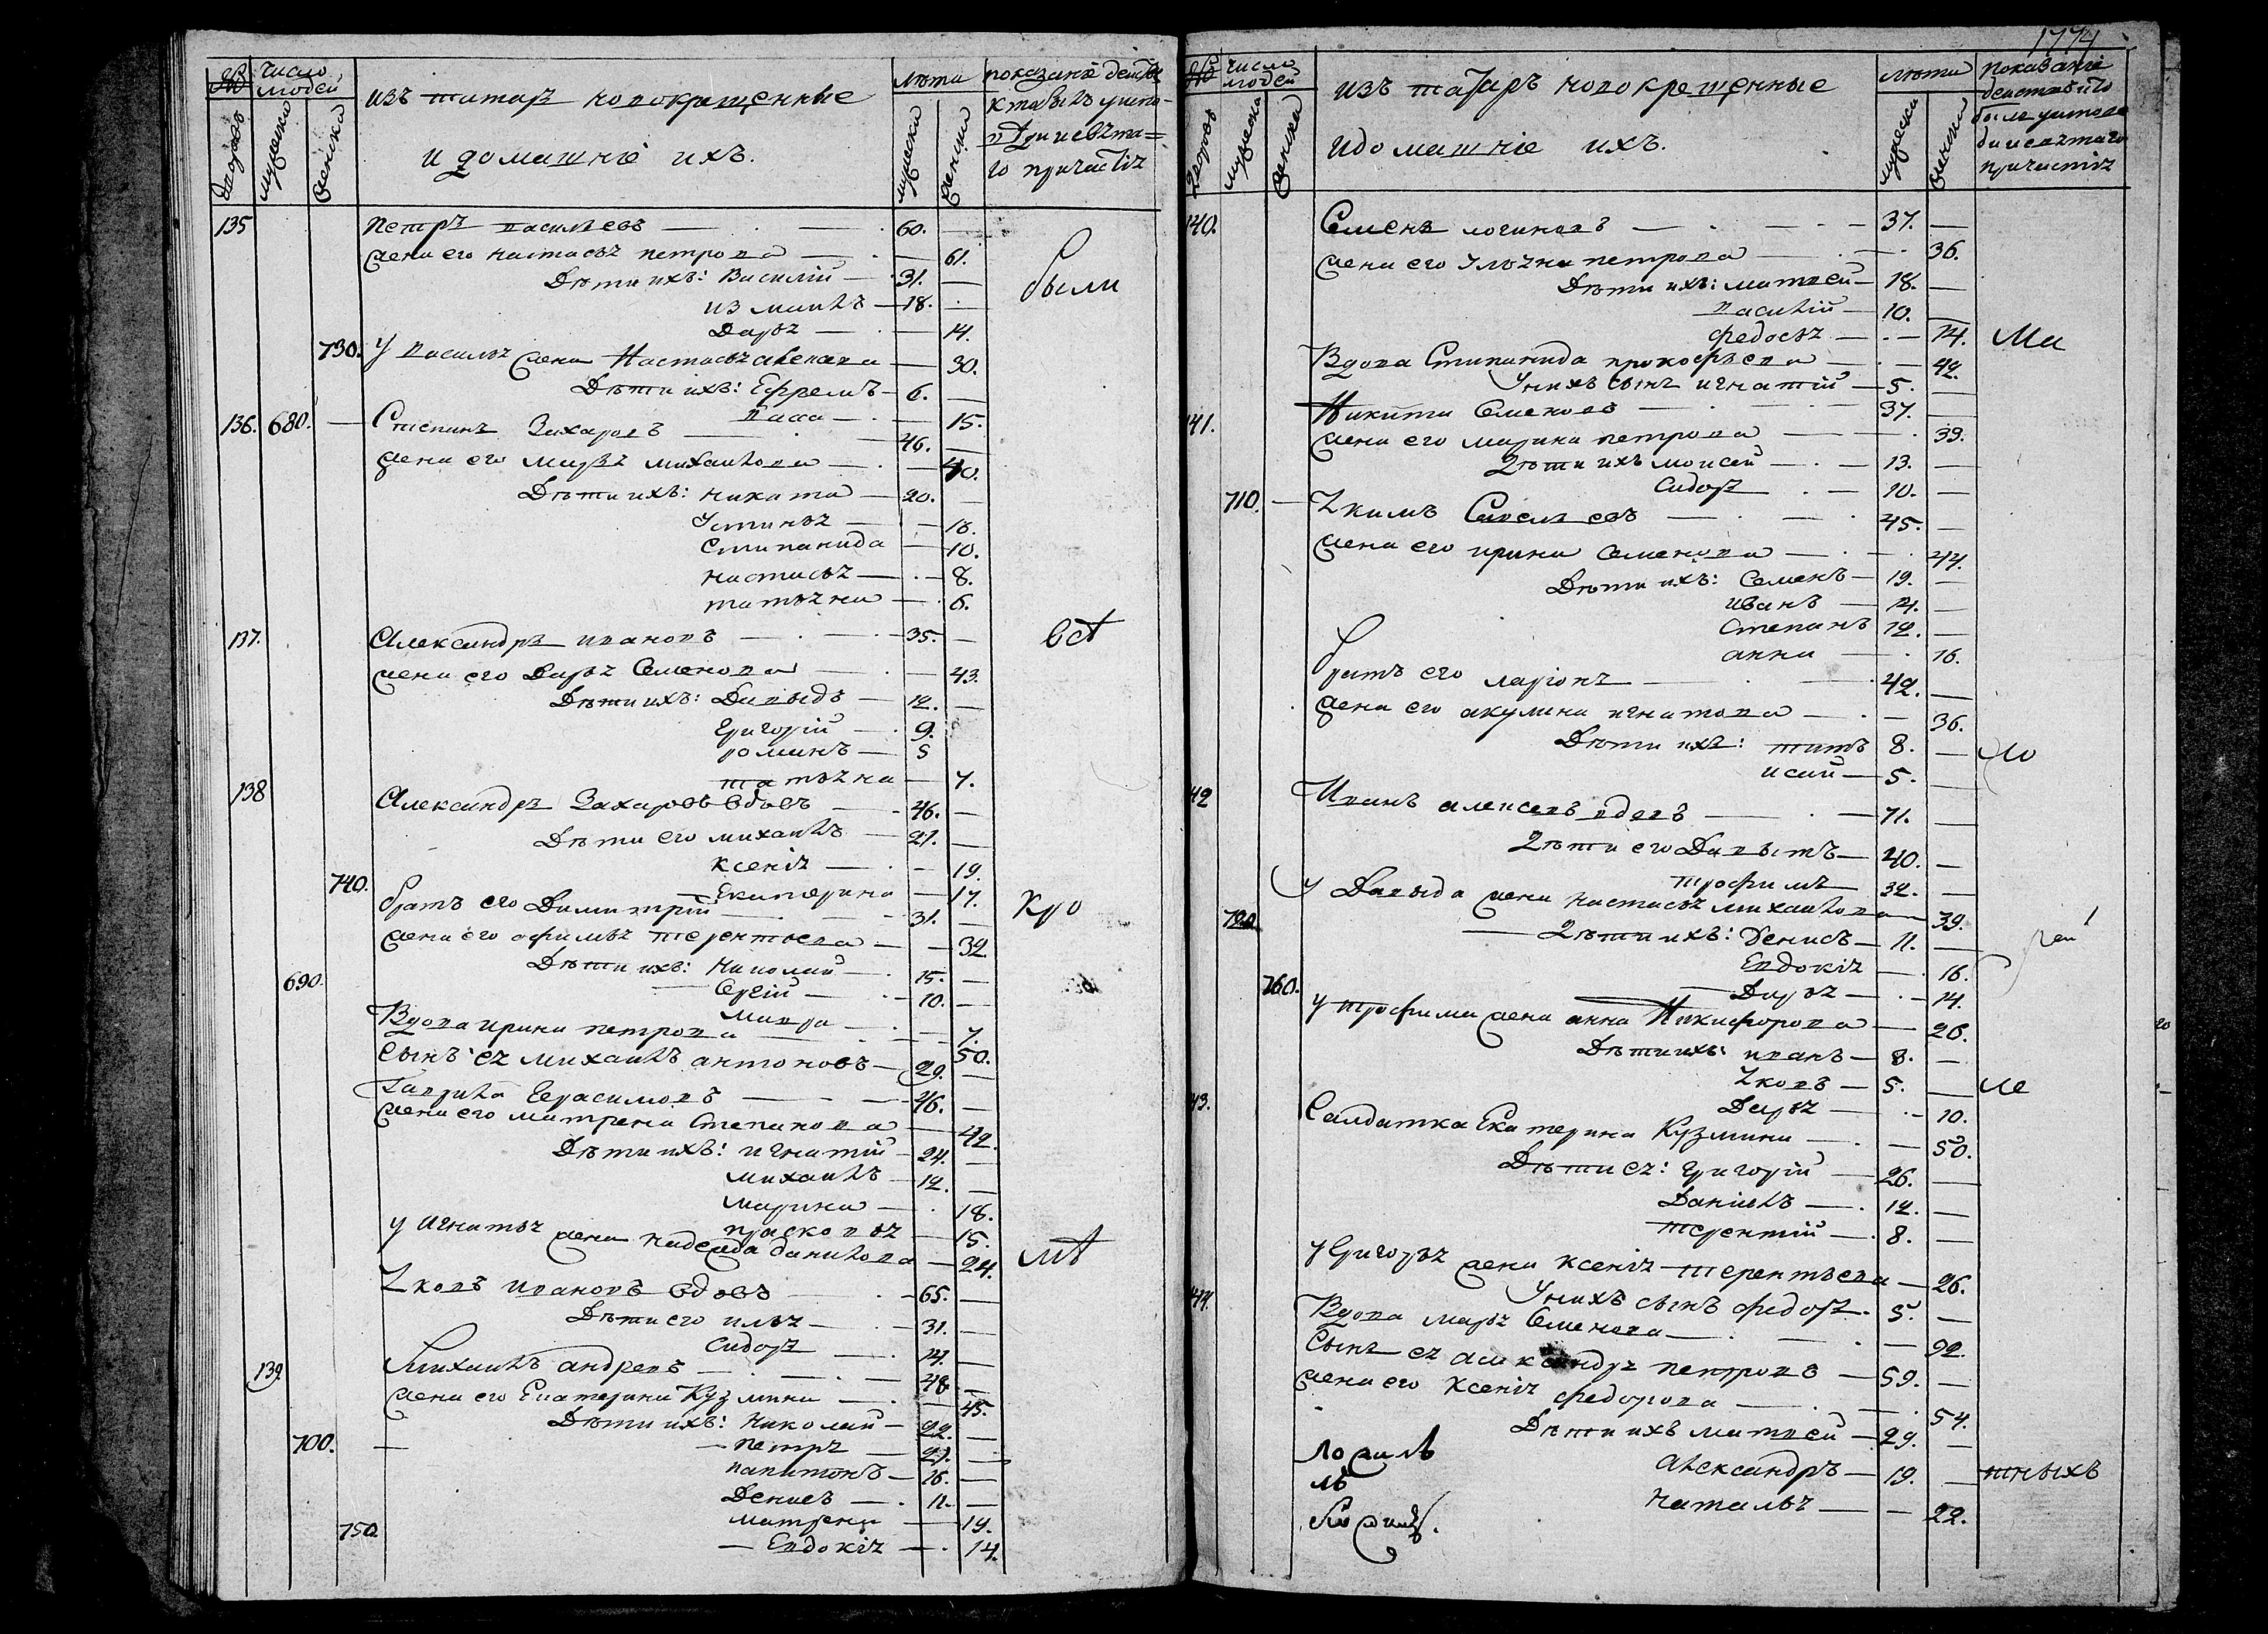 № число людей
дворовъ мужеска женска
изъ татаръ новокрещенные
и домашніе ихъ.
лѣта
мужеска женски
показаніе действ
го причастія
135 Петръ васильевъ 60.
жена его настасья петрова 61.
Дѣти ихъ: Василій 31. были
измаилъ 18.
Дарья 14.
730. У василья жена Настасья 30.
Дѣти ихъ: Ефремъ 6.
васа 15.
136. 680. Степанъ Захаровъ 46.
жена его марья михаилова 40.
Дѣти ихъ: никита 20.
Устинья 18.
Степанида 10.
настасья 8.
татьяна 6.
137. Александръ ивановъ 35. всѣ
жена его Дарья Семенова 43.
Дѣти ихъ: Давыдъ 12.
Григорій 9.
романъ 5
татьяна 7.
138 Александръ Захаровъ вдовъ 46.
Дѣти его михаилъ 21.
Ксенія 19.
740. Екатерина 17.
братъ его Димитрій 31. кро
жена его офимья терентьева 32
Дѣти ихъ: Николай 15.
690. Сергій 10.
мавра 7.
Вдова ирина петрова 50.
Сынъ ея михаилъ антоновъ 29.
Гаврила Герасимовъ 46.
жена его матрена Степанова 42
Дѣти ихъ: игнатій 24.
михаилъ 12.
марина 18.
прасковья 15.
у игнатья жена надежда данилова 24. мѣ
Яковъ ивановъ вдовъ 65.
Дѣти его илья 31.
Сидоръ 14.
139 Михаилъ андреевъ 48
жена его Екатерина Кузмина 45.
Дѣти ихъ: николай 22.
700. петръ 21.
капитонъ 18.
Денисъ 11.
матрена 19.
750 Евдокія 14.
1774
№ число людей
дворовъ мужеска женска
изъ татаръ новокрещенные
и домашніе ихъ.
лѣта
мужеска женски
показаніе
причастія
140. Семенъ логиновъ 37.
жена его Ульяна петрова 36.
Дѣти ихъ: матвей 18.
василій 10.
федосья 14. Ма
Вдова Степанида прокофьева 42.
У нихъ сынъ игнатій 5.
141. Никита Семеновъ 37.
жена его марина петрова 39.
Дѣти ихъ моисей 13.
Сидоръ 10.
710. Якимъ Савельевъ 45.
жена его ирина Семенова 44.
Дѣти ихъ: Семенъ 19.
иванъ 14.
Степанъ 12.
анна 16.
братъ его ларіонъ 42.
жена его акулина игнатова 36.
Дѣти ихъ: титъ 8. ло
исай 5.
42 Иванъ алексеевъ вдовъ 71.
Дѣти его Давытъ 40.
трофимъ 32.
у Давыда жена настасья михаилова 39.
720 Дѣти ихъ: Денисъ 11.
Евдокія 16.
760. Дарья 14.
у трофима жена анна Никифорова 26.
Дѣти ихъ: иванъ 8.
Яковъ 5. ле
Дарья 10.
43. Салдатка Екатерина Кузмина 50.
Дѣти ея: Григорій 26.
Даніилъ 12.
терентій 8.
у Григорья жена Ксенія терентьева 26.
У нихъ сынъ федоръ 5.
44. Вдова марья Семенова 92
Сынъ ея александръ петровъ 59.
жена его Ксенія федорова 54.
Дѣти ихъ матвей 29.
Александръ 19. тныхъ
наталья 22.